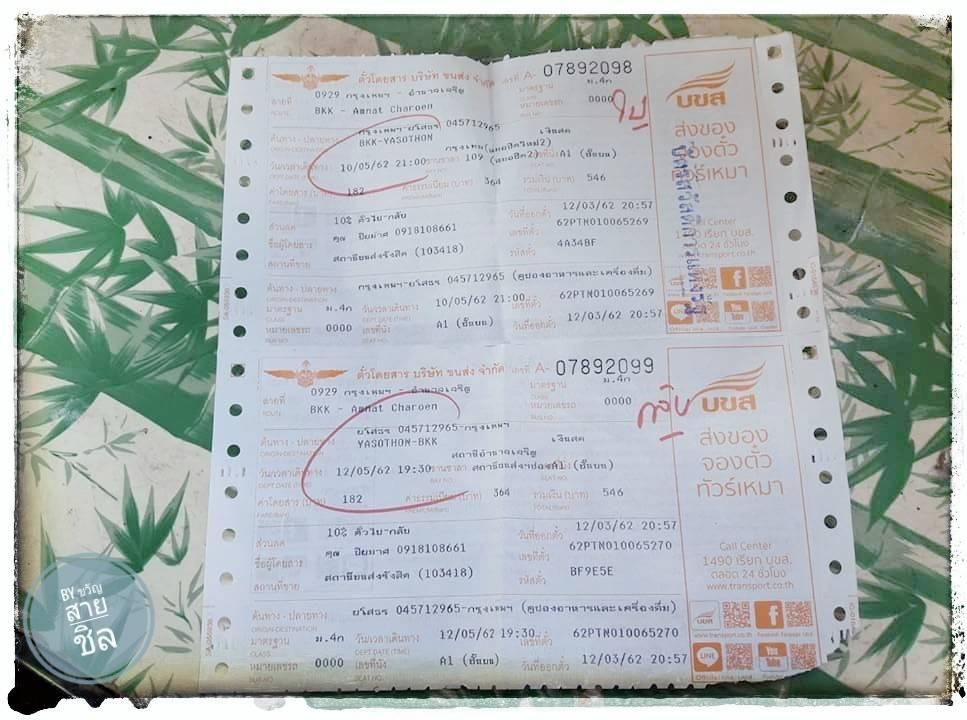 ตั๋วโดยสาร บริษัท ขนส่ง จำกัด เลขที่ A- 07892098
สายที่ 0929 กรุงเทพฯ - อำนาจเจริญ มาตรฐาน ม.4ก
ROUTE BKK - Amnat Charoen หมายเลขรถ 0000 ไป
ต้นทาง - ปลายทาง กรุงเทพฯ-ยโสธร 045712965 เงินสด
ORIGIN-DESTINATION BKK-YASOTHON
วันเวลาเดินทาง 10/05/62 21:00 ชานชาลา 109 ที่นั่ง A1 (ชั้นบน)
DEPT.DATE (TIME)
ค่าโดยสาร (บาท) 182 ค่าธรรมเนียม (บาท) 364 รวมเงิน (บาท) 546
ส่วนลด 10% ตั๋วไป-กลับ วันที่ออกตั๋ว 12/03/62 20:57
ชื่อผู้โดยสาร คุณ ปิยมาศ 0918108661 เลขที่ตั๋ว 62PTN010065269
สถานที่ขาย สถานีขนส่งรังสิต (103418) รหัสตั๋ว 4A34BF
ต้นทาง - ปลายทาง กรุงเทพฯ-ยโสธร 045712965 (คูปองอาหารและเครื่องดื่ม)
ORIGIN-DESTINATION
มาตรฐาน ม.4ก วันเวลาเดินทาง 10/05/62 21:00 เลขที่ตั๋ว 62PTN010065269
CLASS DEPT.DATE (TIME)
หมายเลขรถ 0000 เลขที่นั่ง A1 (ชั้นบน) วันที่ออกตั๋ว 12/03/62 20:57
บขส
ส่งของ
จองตั๋ว
ทัวร์เหมา
Call Center
1490 เรียก บขส.
ตลอด 24 ชั่วโมง
www.transport.co.th
LINE
You Tube
ตั๋วโดยสาร บริษัท ขนส่ง จำกัด เลขที่ A- 07892099
สายที่ 0929 กรุงเทพฯ - อำนาจเจริญ มาตรฐาน ม.4ก
ROUTE BKK - Amnat Charoen หมายเลขรถ 0000 กลับ
ต้นทาง - ปลายทาง ยโสธร 045712965-กรุงเทพฯ เงินสด
YASOTHON-BKK สถานีอำนาจเจริญ
วันเวลาเดินทาง 12/05/62 19:30 ชานชาลา A1 (ชั้นบน)
DEPT.DATE (TIME)
ค่าโดยสาร (บาท) 182 ค่าธรรมเนียม (บาท) 364 รวมเงิน (บาท) 546
ส่วนลด 10% ตั๋วไป-กลับ วันที่ออกตั๋ว 12/03/62 20:57
ชื่อผู้โดยสาร คุณ ปิยมาศ 0918108661 เลขที่ตั๋ว 62PTN010065270
สถานที่ขาย สถานีขนส่งรังสิต (103418) รหัสตั๋ว BF9E5E
ต้นทาง - ปลายทาง ยโสธร 045712965-กรุงเทพฯ (คูปองอาหารและเครื่องดื่ม)
ORIGIN-DESTINATION
มาตรฐาน ม.4ก วันเวลาเดินทาง 12/05/62 19:30 เลขที่ตั๋ว 62PTN010065270
CLASS DEPT.DATE (TIME)
หมายเลขรถ 0000 เลขที่นั่ง A1 (ชั้นบน) วันที่ออกตั๋ว 12/03/62 20:57
บขส
ส่งของ
จองตั๋ว
ทัวร์เหมา
Call Center
1490 เรียก บขส.
ตลอด 24 ชั่วโมง
www.transport.co.th
บขส
www.transport.co.th
LINE
You Tube
BY ขวัญ
สาย
ชิล